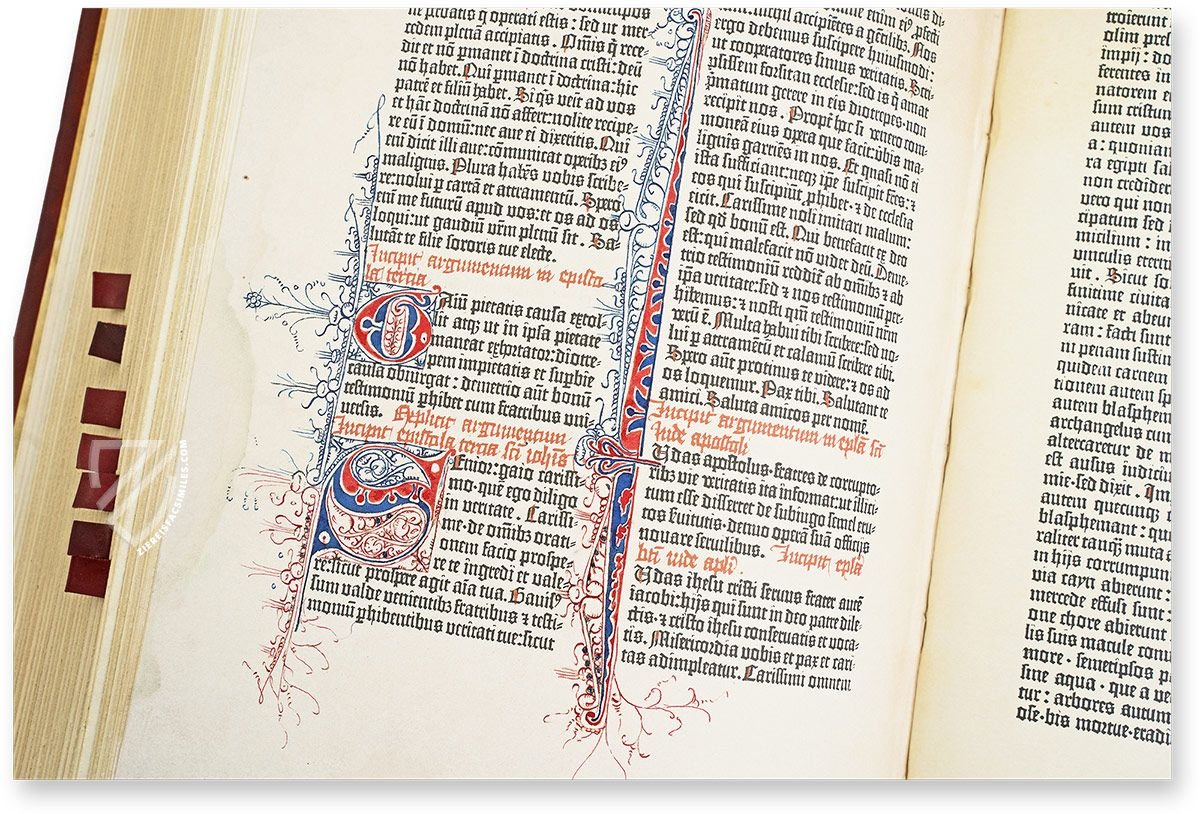 ne perdatis q̄ operati estis: sed ut mer-
cedem plenā accipiatis. Om̄is q̄ rece-
dit et nō ꝑmanet ī doctrina cristi: deū
nō habet. Qui ꝑmanet ī doctrina: hic
patrē et filiū habet. Si q̄s venit ad vos
et hāc doctrinā nō affert: nolite recipe-
re eū ī domū: nec aue ei dixeritis. Qui
eni dicit illi aue: cōmunicat operibꝫ eiꝰ
malignis. Plura habēs vobis scribe-
re: nolui ꝑ cartā et attramentū. Spero
enī me futurū apud vos: et os ad os
loqui: ut gaudiū vrm̄ plenū sit. Sa-
lutāt te filie sororis tue electe.
Incipit argumentum in episto-
la tercia
GAium pietatis causa extol-
lit atqꝫ ut in ipsa pietate
maneat exhortatur: diotre-
pem impietatis et supbie
causa obiurgat: demetrio aūt bonū
testimonium ꝑhibet cum fratribus uni-
uersis. Explicit argumentum
Incipit epistola tercia sc̄i iohis
SEnior: gaio carissi-
mo. que ego diligo
in veritate. Carissi-
me. de om̄ibꝫ orati-
onem facio prospe-
re te ingredi et vale-
re: sicut prospere agit aīa tua. Gauisꝰ
sum valde venientibꝫ fratribus ⁊ testi-
moniū ꝑhibentibus veritati tue: sicut
ergo debemus suscipere huiusmodi:
ut cooperatores simus veritatis. Scri-
psissem forsitan ecclesie: sed is q̄ amat
primatum gerere in eis diotrepes. non
recipit nos. Propt̄ hoc si venero com-
moneā eius opera que facit: ꝟbis ma-
lignis garriēs in nos. Et quasi nō ei
ista sufficiant: neqꝫ ipe suscipit frēs: ⁊
eos qui suscipiūt ꝓhibet. ⁊ de ecclesia
eicit. Carissime noli imitari malum:
sed qd̄ bonū est. Qui benefacit ex deo
est: qui malefacit nō videt deū. Deme-
trio testimoniū reddit̄ ab om̄ibꝫ ⁊ ab
ipa veritate: sed ⁊ nos testimoniū per-
hibemus: ⁊ nosti qm̄ testimoniū nr̄m
verū ē. Multa habui tibi scribere: sed no-
lui ꝑ attramētū et calamū scribere tibi.
Spero aūt protinus te videre: ⁊ os ad
os loquemur. Pax tibi. Salutant te
amici. Saluta amicos per nomē.
Incipit argumentum in epl̄a sc̄i
Iude apostoli
IUdas apostolus. fratres de corrupto-
ribꝫ vie veritatis ita informat: ut illici-
tos fuitutis. denuo opera suā officijs
nouare seculibus. Incipit epl̄a
bti iude apl̄i
IUdas ihesu cristi seruus frater autē
iacobi: hijs qui sunt in deo patre dile-
ctis. ⁊ cristo ihesu conseruatis et voca-
tis. Misericordia vobis et pax et cari-
tas adimpleatur. Carissimi omnem
olim pres
impij: do
ferentes in
natorem e
sum cristum
autem vos
a: quoniam
ra egipti sa
non credider
pero qui non
ripatum sed
micilium: in
vinculis etern
uit. Sicut so
finitime ciuita
nicate et abeu
ram: facti sunt
ni penam sustin
quidem carnem
tionem autem sp
autem blasphem
archangelus cum
altercaretur de m
est ausus iudiciu
mie. sed dixit. Im
autem quecunqꝫ
blasphemant: qu
raliter tanqꝫ muta a
in hijs corrumpun
via cayn abierunt:
mercede effusi sunt:
one chore abierunt
lis suis macule conu
more. semetipsos p
sine aqua. que a ve
tur: arbores autum
ose. bis mortue. eradi
ZIEREISFACSIMILES.COM